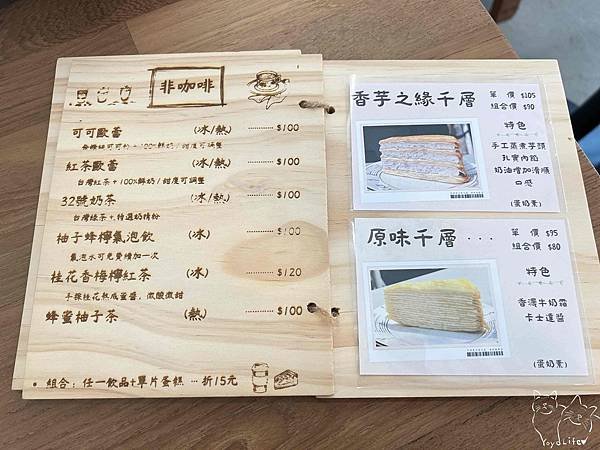 非咖啡
可可歐蕾 (冰/熱) ............ $100
無糖純可可粉+100%鮮奶/甜度可調整
紅茶歐蕾 (冰/熱) ............ $100
台灣紅茶+100%鮮奶/甜度可調整
32號奶茶 (冰/熱) ............ $100
台灣綠茶+特選奶精粉
柚子蜂檸氣泡飲 (冰) ............ $100
氣泡水可免費續加一次
桂花香梅檸紅茶 (冰) ............ $120
手採桂花熬成蜜醬,微酸微甜
蜂蜜柚子茶 (熱) ............ $100
• 組合:任一飲品+單片蛋糕 ... 折15元
香芋之緣千層
單 價 $105
組合價 $90
特色
手工蒸煮芋頭
扎實內餡
奶油增加滑順
口感
(蛋奶素)
原味千層 ...
單 價 $95
組合價 $80
特色
香濃牛奶霜
卡士達醬
(蛋奶素)
YoyoLife